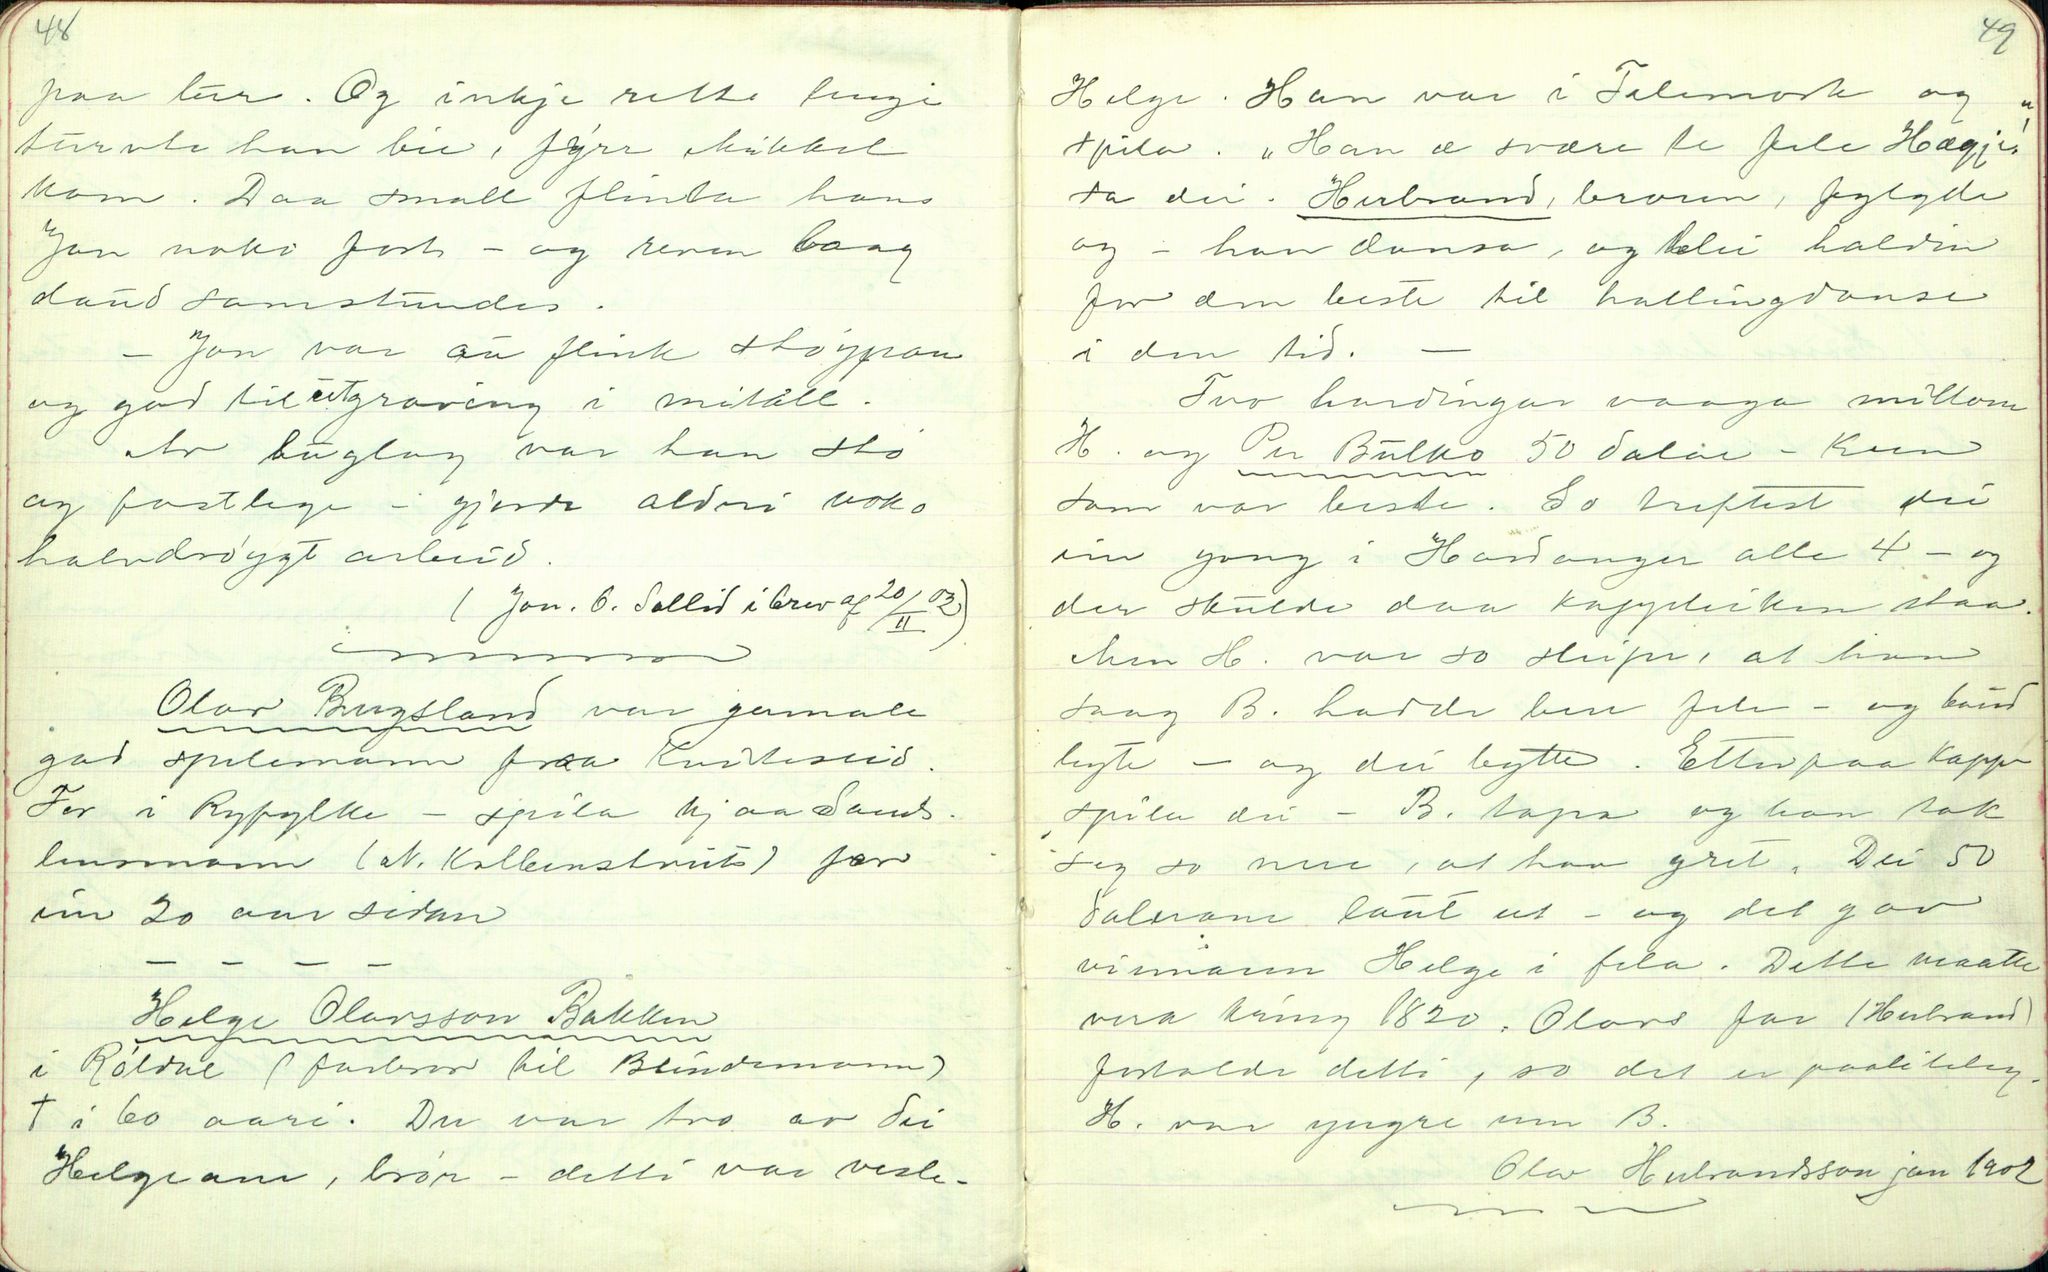 48
paa lur. Og inkje rette lengi
turvte han bie, fyrr Mikkel
kom. Daa small flinta hans
Jon noko fort – og reven laag
daud samstundes.
– Jon var au flink støypar
og god til utgraving i mitall.
Av huglag var han stø
og fastlege – gjorde aldri noko
halvdrøygt arbeid.
(Jon. O. Sollid i brev af 20/II 02)
Olav Brugsland var gamale
god spelemann fraa Kviteseid.
For i Ryfylke – spila hjaa Sauds-
lensmann (N. Kolbenstvût) for
ein 20 aar sidan
– – – –
Helge Olavsson Bakken
i Røldal (farbror til Blindemann)
† i 60 aari. Der var tvo av dei
Helgeane, brør – detti var vesle-
49
Helge. Han var i Telemork og
spila. "Han æ svære te fele Hægji"
sa dei. Herbrand, broren, fylgde
og – han dansa, og blei haldin
for den beste til hallingdanse
i den tid. –
Tvo hardingar vaaga millom
H. og Per Bulko 50 dalar – kven
som var beste. So treftest dei
ein gong i Hardanger alle 4 – og
der skulde daa kappleiken staa.
Men H. var so sleipe, at han
saag B. hadde bere fele – og baud
byte – og dei bytte. Etterpaa kapp-
spila dei – B. tapa og han tok
seg so nere, at han gret. Dei 50
dalarane laut ut – og det gav
vinnaren Helge i fela. Dette maatte
vera kring 1820. Olavs far (Herbrand)
fortalde detti, so det er paaliteleg.
H. var yngre enn B.
Olav Herbrandsson jan 1902